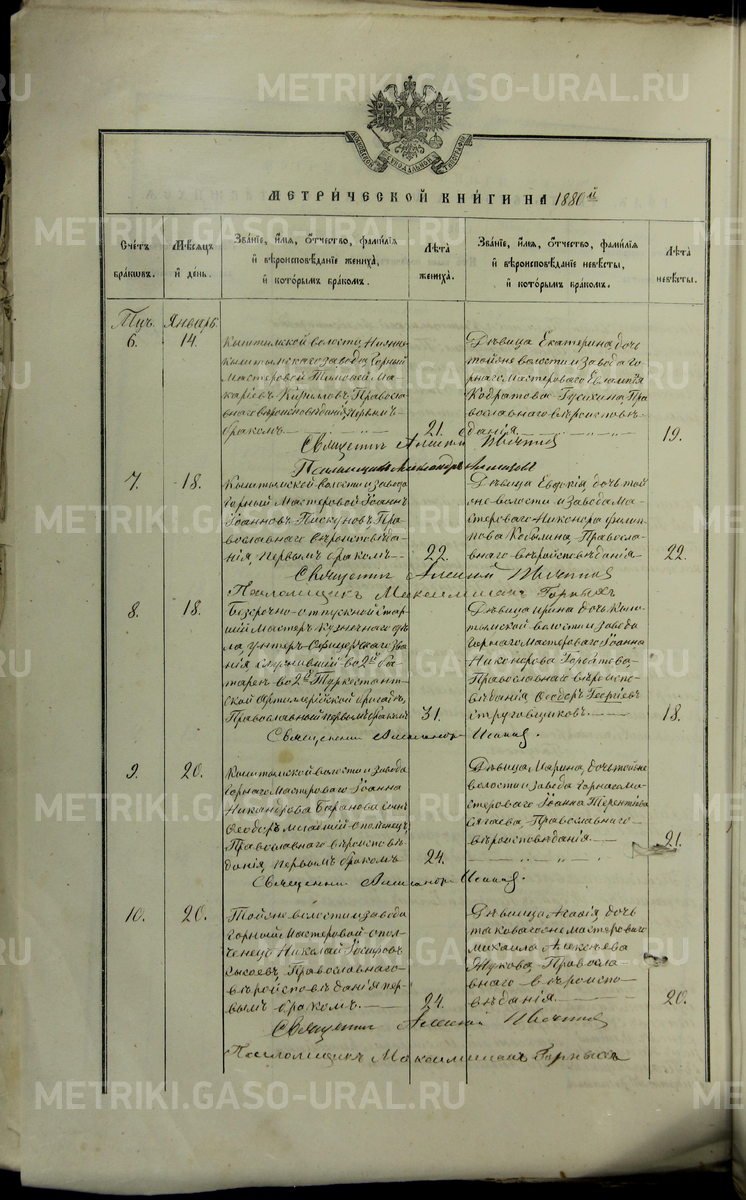 METRIKI.GASO-URAL.RU
МЕТРИ́ЧЕСКОЙ КНИ́ГИ НА 1880й
Сче́тъ бра́кωвъ.
Мѣсяцъ и҆ де́нь.
Зва́нїе, и҆́мѧ, ѻ҆́тчество, фамѝлїѧ и҆ вѣроисповѣ́данїе жениха̀, и҆ кото́рымъ бра́комъ.
Лѣ́та жениха̀.
Зва́нїе, и҆́мѧ, ѻ҆́тчество, фамѝлїѧ и҆ вѣроисповѣ́данїе невѣ́сты, и҆ кото́рымъ бра́комъ.
Лѣ́та невѣ́сты.
Январь
6.
14.
Кыштымской волости, Нижне-
кыштымскаго завода, Горный
Мастеровой Тимофей Ма-
каріевъ Кирилловъ, Правосла-
внаго вѣроисповѣданія, первымъ
бракомъ
21.
Дѣвица Екатерина, дочь
той же волости и завода Го-
рнаго Мастероваго Евлампія
Кодратова Гусихина, Пра-
вославнаго вѣроисповѣ-
данія
19.
Священникъ Алексій
Псаломщикъ Александръ
7.
18.
Кыштымской волости и завода
Горный Мастеровой Іоаннъ
Іоанновъ Пискуновъ, Пра-
вославнаго вѣроисповѣда-
нія, первымъ бракомъ
22.
Дѣвица Евдокія, дочь той
же волости и завода Ма-
стероваго Никонора Филип-
пова Кобылина, Правосла-
внаго вѣроисповѣданія
22.
Священникъ Алексій
Псаломщикъ Максимиліанъ Горныхъ
8.
18.
Безсрочно-отпускной стар-
шій Мастеръ кузнечнаго дѣ-
ла унтеръ-офицерскаго зва-
нія служившій во 2й ба-
тареѣ во 2й Туркестан-
ской Артиллерійской бригадѣ,
Православный первымъ бракомъ
31.
Дѣвица Ирина дочь Кыш-
тымской волости и завода
Горнаго Мастероваго Іоанна
Никонорова Горбатова,
Православнаго вѣроиспо-
вѣданія, Ѳеодоръ Георгіевъ
Струговщиковъ.
18.
Священникъ Александръ
9.
20.
Кыштымской волости и завода
Горнаго Мастероваго Іоанна
Никанорова Баранова сынъ
Ѳеодоръ младшій ополченецъ,
Православнаго вѣроисповѣ-
данія, первымъ бракомъ
24.
Дѣвица Марина, дочь той же
волости и завода Горнаго Ма-
стероваго Іоанна Терентьева
Сягаева, Православнаго
вѣроисповѣданія
21.
Священникъ Александръ
10.
20.
Той же волости и завода
Горный Мастеровой опол-
ченецъ Николай
Сысоевъ, Православнаго
вѣроисповѣданія пер-
вымъ бракомъ.
24.
Дѣвица Агаѳія, дочь
таковаго же мастероваго
Михаила Алексѣева
Жукова, Правосла-
внаго вѣроиспо-
вѣданія
20.
Священникъ Алексій
Псаломщикъ Максимиліанъ Горныхъ